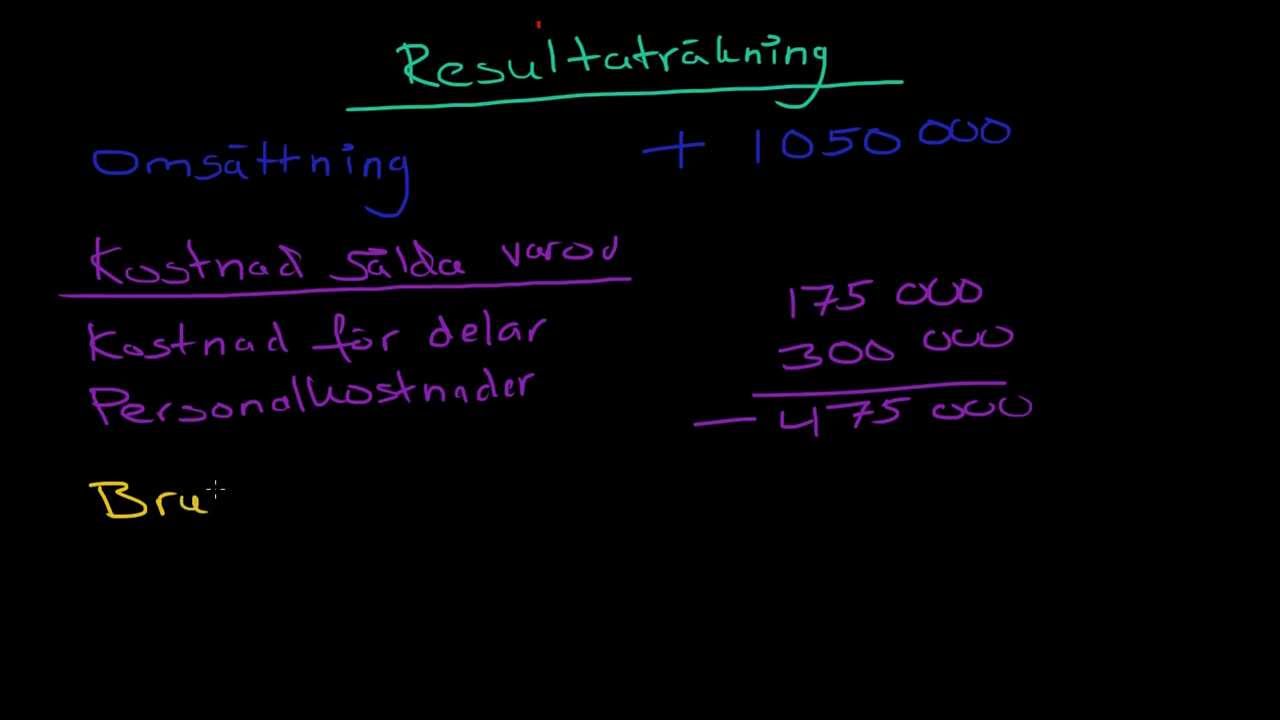 Resultaträkning
Omsättning + 1050 000
Kostnad sålda varor
175 000
Kostnad för delar 300 000
Personalkostnader
- 475 000
Bru